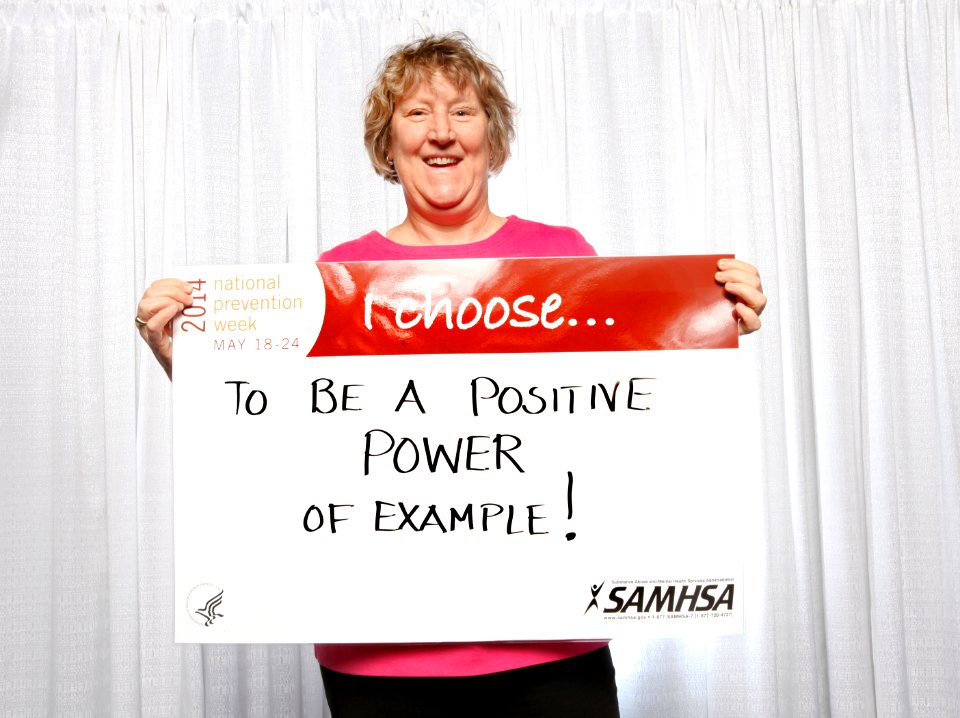 2014
national
prevention
week
MAY 18-24
I choose...
TO BE A POSITIVE
POWER
OF EXAMPLE!
Substance Abuse and Mental Health Services Administration
SAMHSA
www.samhsa.gov • 1-877-SAMHSA-7 (1-877-726-4727)